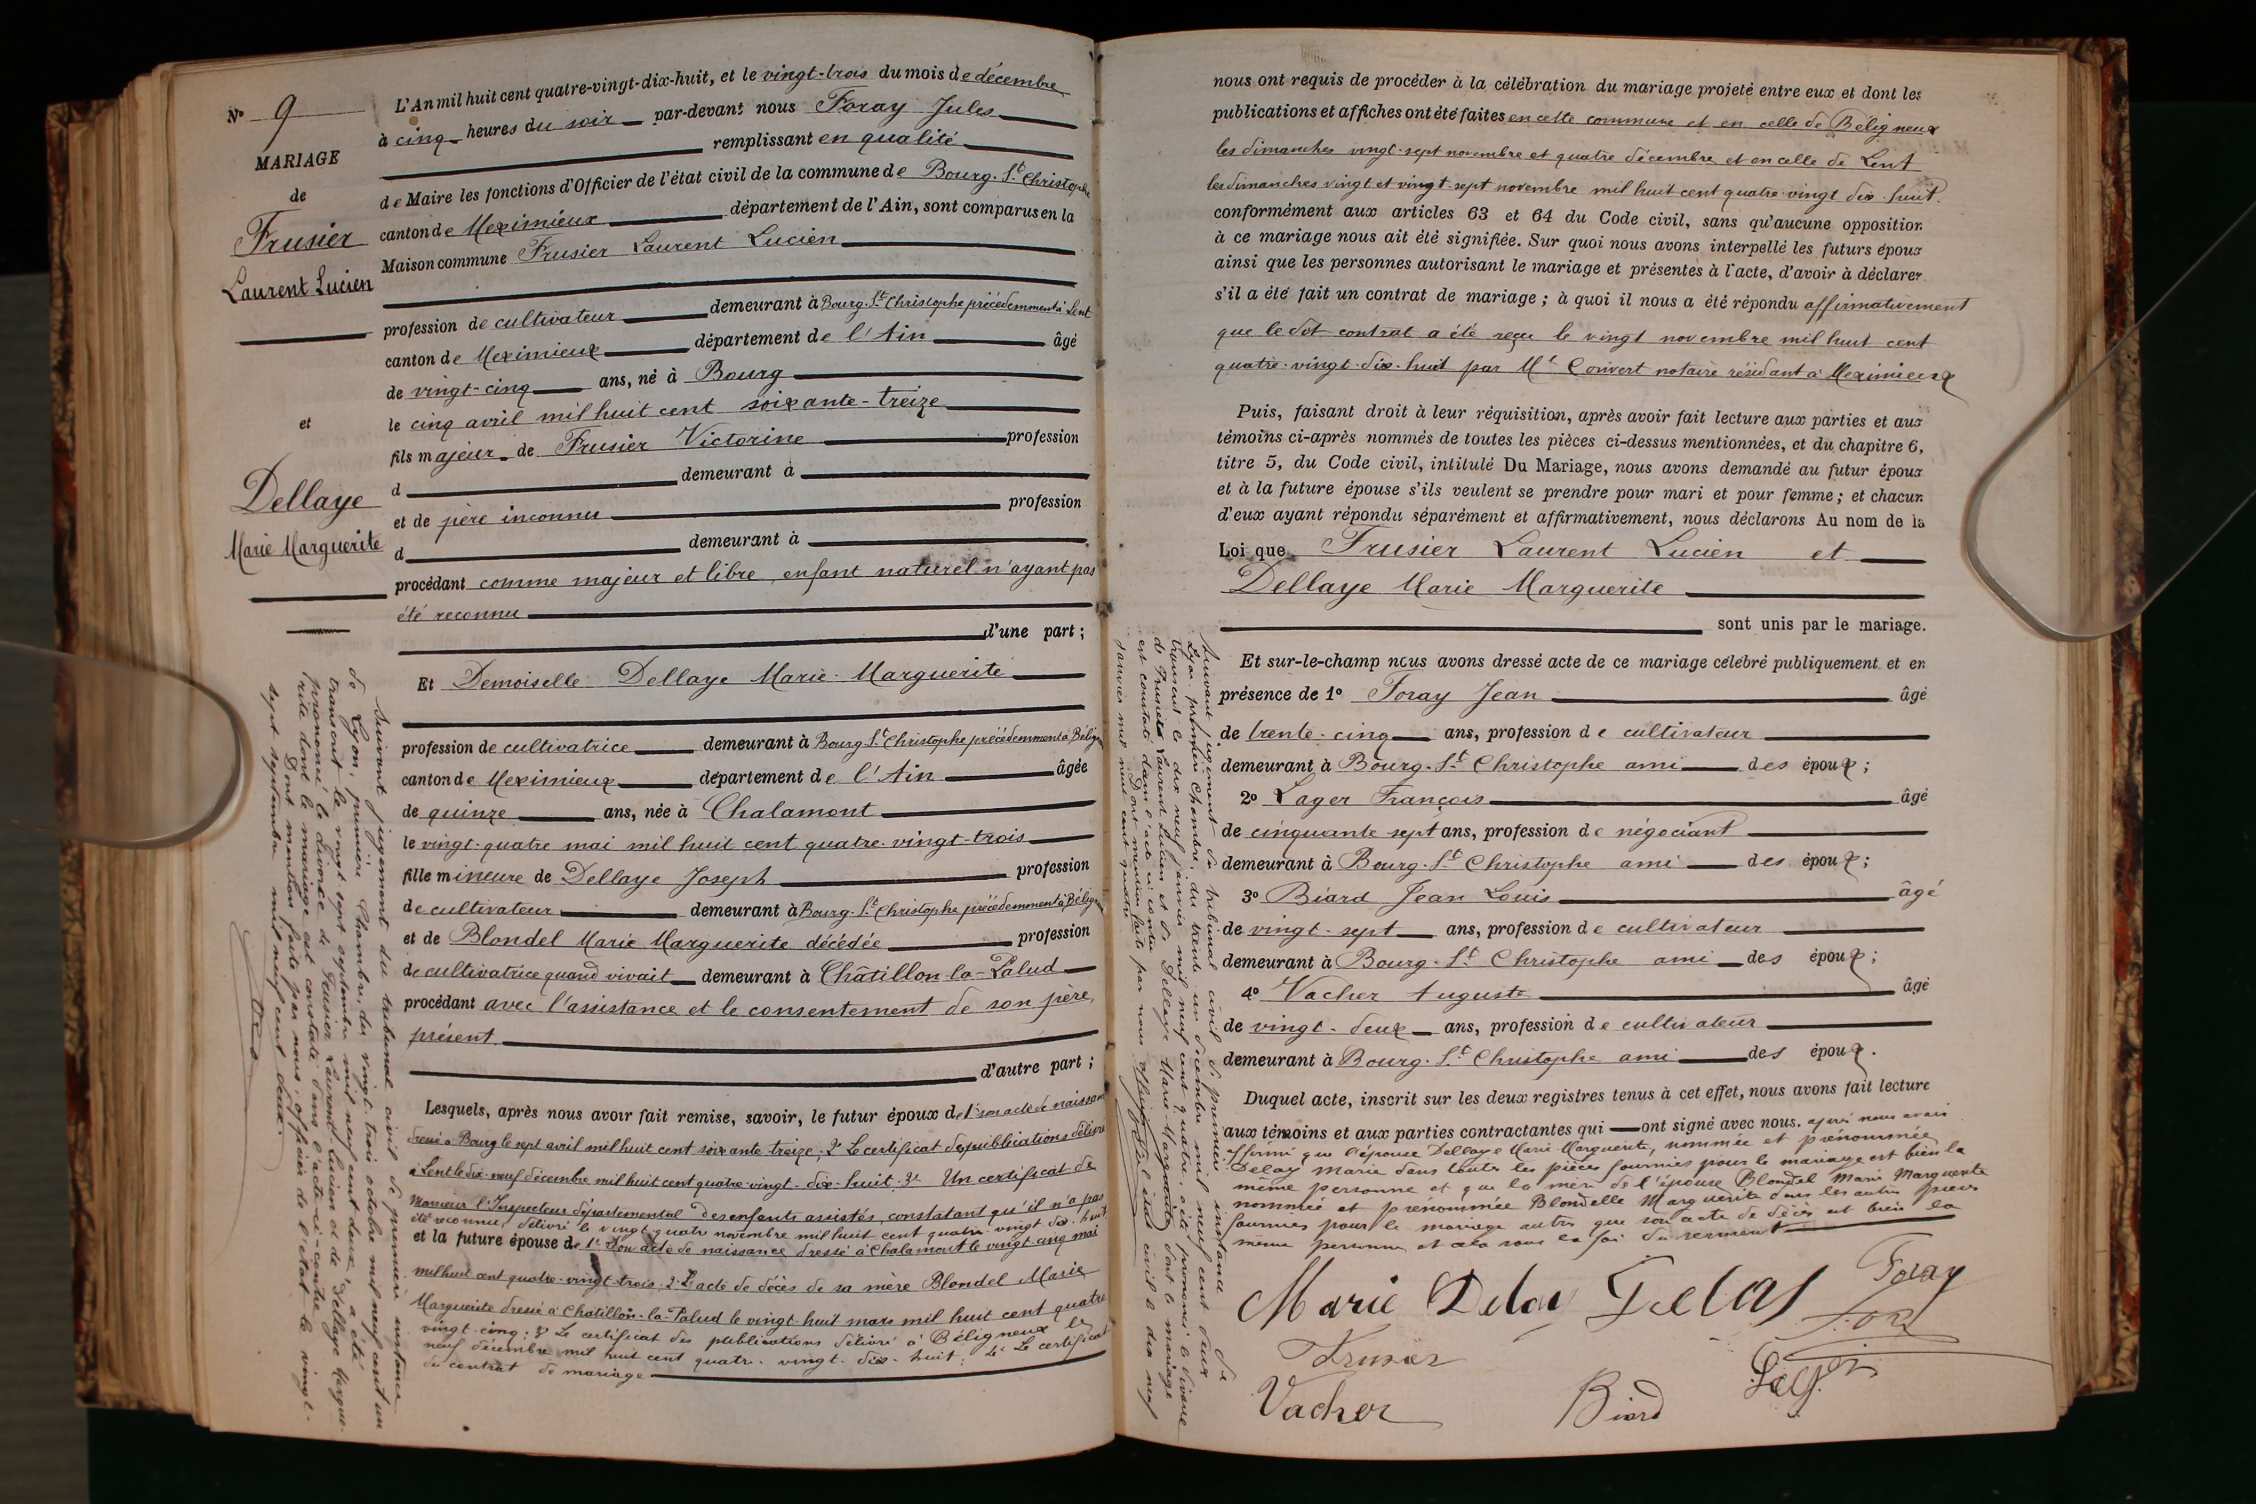 N° 9
MARIAGE
de
Frusier
Laurent Lucien
et
Dellaye
Marie Marguerite
L'An mil huit cent quatre-vingt-dix-huit, et le vingt-trois du mois de décembre
à cinq heures du soir par-devant nous Foray Jules
remplissant en qualité
de Maire les fonctions d'Officier de l'état civil de la commune de Bourg-St Christophe
canton de Meximieux département de l'Ain, sont comparus en la
Maison commune Frusier Laurent Lucien
profession de cultivateur demeurant à Bourg-St-Christophe précédemment à Lent
canton de Meximieux département de l'Ain âgé
de vingt-cinq ans, né à Bourg
le cinq avril mil huit cent soixante-treize
fils majeur de Frusier Victorine profession
d demeurant à
et de père inconnu profession
d demeurant à
procédant comme majeur et libre, enfant naturel n'ayant pas
été reconnu
d'une part ;
Et Demoiselle Dellaye Marie Marguerite
profession de cultivatrice demeurant à Bourg-St-Christophe précédemment à Bélign
canton de Meximieux département de l'Ain âgée
de quinze ans, née à Chalamont
le vingt-quatre mai mil huit cent quatre-vingt-trois
fille mineure de Dellaye Joseph profession
de cultivateur demeurant à Bourg-St-Christophe précédemment à Bélign
et de Blondel Marie Marguerite décédée profession
de cultivatrice quand vivait demeurant à Châtillon-la-Palud
procédant avec l'assistance et le consentement de son père
présent
d'autre part ;
Lesquels, après nous avoir fait remise, savoir, le futur époux de 1° son acte de naissance
dressé à Bourg le sept avril mil huit cent soixante treize ; 2° Le certificat de publications délivré
à Lent le dix-neuf décembre mil huit cent quatre-vingt-dix-huit ; 3° Un certificat de
Monsieur l'Inspecteur départemental des enfants assistés, constatant qu'il n'a pas
été reconnu, délivré le vingt-quatre novembre mil huit cent quatre-vingt dix-huit
et la future épouse de 1° Son acte de naissance dressé à Chalamont le vingt cinq mai
mil huit cent quatre-vingt-trois ; 2° L'acte de décès de sa mère Blondel Marie
Marguerite dressé à Châtillon-la-Palud le vingt-huit mars mil huit cent quatre
vingt-cinq ; 3° Le certificat des publications délivré à Béligneux le
neuf décembre mil huit cent quatre-vingt-dix-huit ; 4° Le certificat
du contrat de mariage
Suivant jugement du tribunal civil de première instance
de Lyon, première Chambre, du vingt-trois octobre mil neuf cent un
transcrit le vingt sept septembre mil neuf cent deux, a été
prononcé le divorce de Frusier Laurent Lucien et de Dellaye Margue-
rite dont le mariage est constaté dans l'acte ci-contre
Dont mention faite par nous, officier de l'état le vingt-
sept septembre mil neuf cent deux.
nous ont requis de procéder à la célébration du mariage projeté entre eux et dont les
publications et affiches ont été faites en cette commune et en celle de Béligneux
les dimanches vingt-sept novembre et quatre décembre et en celle de Lent
les dimanches vingt et vingt-sept novembre mil huit cent quatre-vingt dix-huit.
conformément aux articles 63 et 64 du Code civil, sans qu'aucune opposition
à ce mariage nous ait été signifiée. Sur quoi nous avons interpellé les futurs époux
ainsi que les personnes autorisant le mariage et présentes à l'acte, d'avoir à déclarer
s'il a été fait un contrat de mariage ; à quoi il nous a été répondu affirmativement
que le dit contrat a été reçu le vingt novembre mil huit cent
quatre-vingt-dix-huit par Me Convert notaire résidant à Meximieux
Puis, faisant droit à leur réquisition, après avoir fait lecture aux parties et aux
témoins ci-après nommés de toutes les pièces ci-dessus mentionnées, et du chapitre 6,
titre 5, du Code civil, intitulé Du Mariage, nous avons demandé au futur époux
et à la future épouse s'ils veulent se prendre pour mari et pour femme ; et chacun
d'eux ayant répondu séparément et affirmativement, nous déclarons Au nom de la
Loi que Frusier Laurent Lucien et
Dellaye Marie Marguerite
sont unis par le mariage.
Et sur-le-champ nous avons dressé acte de ce mariage célébré publiquement et en
présence de 1° Foray Jean âgé
de trente-cinq ans, profession de cultivateur
demeurant à Bourg-St Christophe ami des époux ;
2° Lager François âgé
de cinquante sept ans, profession de négociant
demeurant à Bourg-St Christophe ami des époux ;
3° Biard Jean Louis âgé
de vingt-sept ans, profession de cultivateur
demeurant à Bourg-St Christophe ami des époux ;
4° Vacher Auguste âgé
de vingt-deux ans, profession de cultivateur
demeurant à Bourg-St Christophe ami des époux.
Duquel acte, inscrit sur les deux registres tenus à cet effet, nous avons fait lecture
aux témoins et aux parties contractantes qui ont signé avec nous. après nous avoir
affirmé que l'épouse Dellaye Marie Marguerite, nommée et prénommée
Delay Marie dans toutes les pièces fournies pour le mariage est bien la
même personne et que la mère de l'épouse Blondel Marie Marguerite
nommée et prénommée Blondelle Marguerite dans les autres pièces
fournies pour le mariage autres que son acte de décès est bien la
même personne et cela sous la foi du serment
Suivant jugement du tribunal civil de première instance de
Lyon, première Chambre, du trente un décembre mil neuf cent deux
transcrit le dix neuf janvier mil neuf cent quatre, a été prononcé le divorce
de Frusier Laurent Lucien et de Dellaye Marie-Marguerite, dont le mariage
est constaté dans l'acte ci-contre
Dont mention faite par nous officier de l'état civil le dix neuf
janvier mil neuf cent quatre
Marie Delay Delay Foray
Foray
Frusier
Lager
Vacher Biard